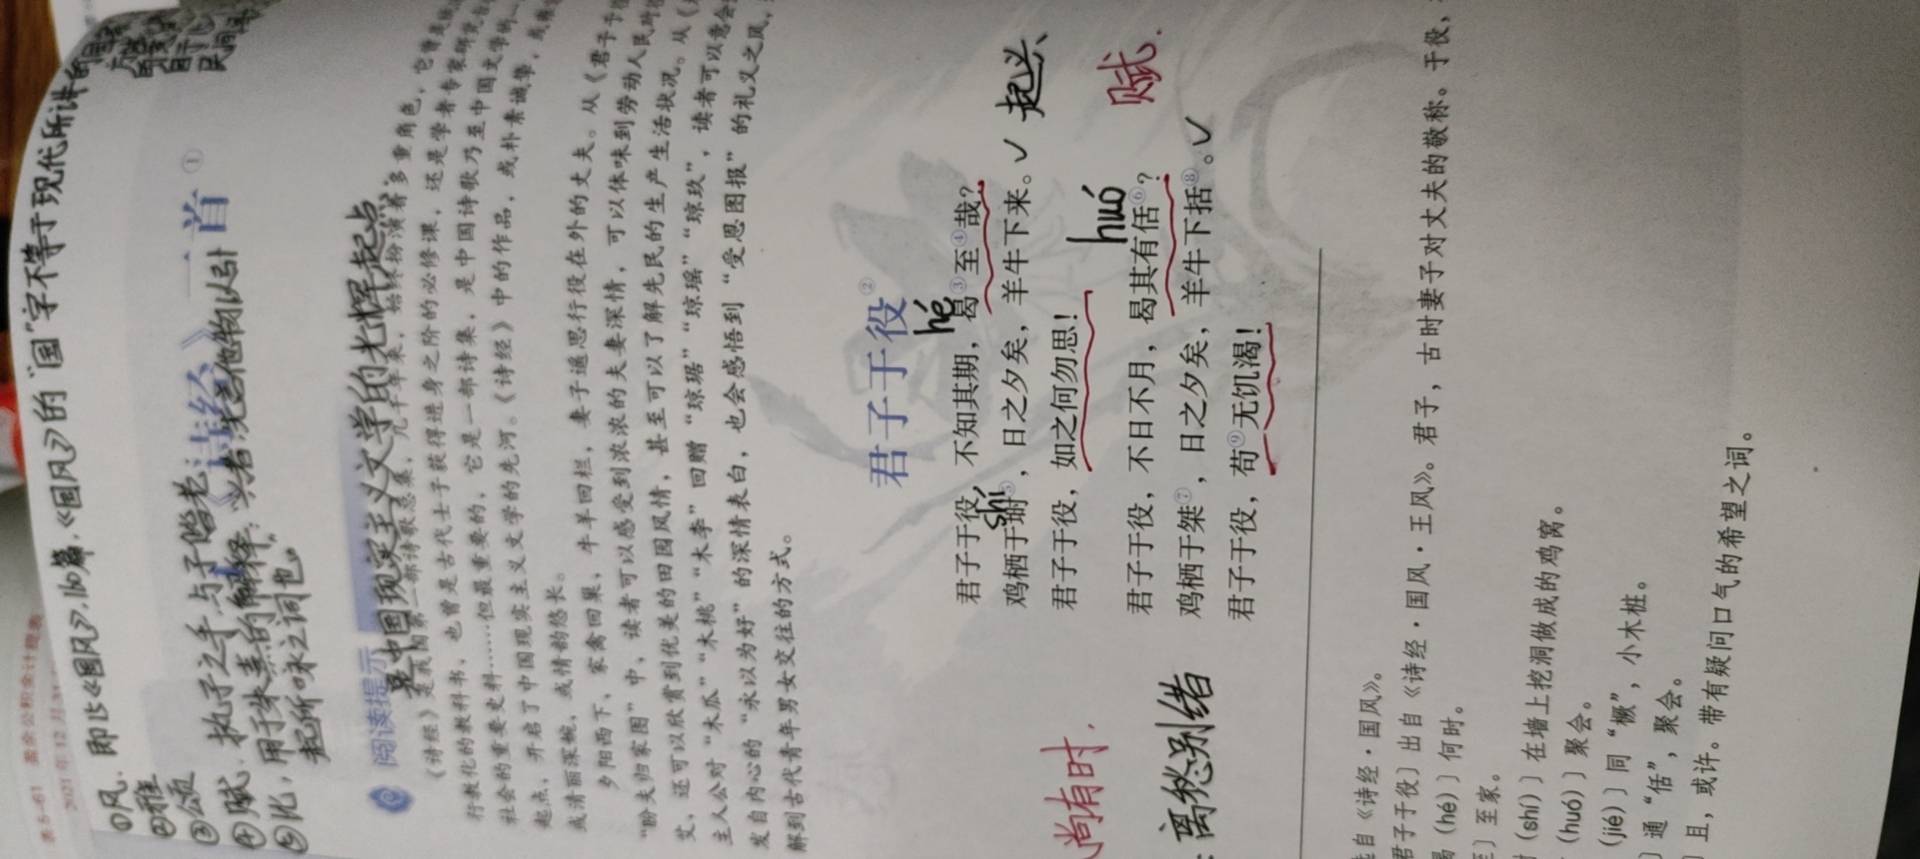 即此《国风》,160篇,《国风》的“国”字不等于现代所讲的
①风
②雅
③颂
④赋
⑤比
执子之手,与子偕老
用于朱熹的解释:“兴者,先言他物以引
起所咏之词也”
《诗经》二首①
阅读提示
是中国现实主义文学的光辉起点.
行教化的教科书,也曾是古代士子获得进身之阶的必修课,还是学者专家研究
社会的重要史料……但最重要的,它是一部诗集,是中国诗歌乃至中国文学的
起点,开启了中国现实主义文学的先河。《诗经》中的作品,或朴素诚挚,
或清丽深婉,或情韵悠长。
夕阳西下,家禽回巢,牛羊回栏,妻子遥思行役在外的丈夫。从《君子于役》
“盼夫归家图”中,读者可以感受到浓浓的夫妻深情,可以体味到劳动人民
艾,还可以欣赏到优美的田园风情,甚至可以了解先民的生产生活状况。从
主人公对“木瓜”“木桃”“木李”回赠“琼琚”“琼瑶”“琼玖”,读者可以意会
发自内心的“永以为好”的深情表白,也会感悟到“受恩图报”的礼义之风,
解到古代青年男女交往的方式。
君子于役②
君子于役,不知其期,曷③至④哉?
hé
鸡栖于埘⑤,日之夕矣,羊牛下来。✓ 起兴、
shí
君子于役,如之何勿思!
君子于役,不日不月,曷其有佸⑥? 赋.
huó
鸡栖于桀⑦,日之夕矣,羊牛下括⑧。✓
君子于役,苟⑨无饥渴!
尚有时.
离愁别绪
选自《诗经·国风》。
君子于役〕出自《诗经·国风·王风》。君子,古时妻子对丈夫的敬称。于役,
曷(hé)〕何时。
至〕至家。
埘(shí)〕在墙上挖洞做成的鸡窝。
(huó)〕聚会。
(jié)〕同“橛”,小木桩。
〕通“佸”,聚会。
〕且,或许。带有疑问口气的希望之词。